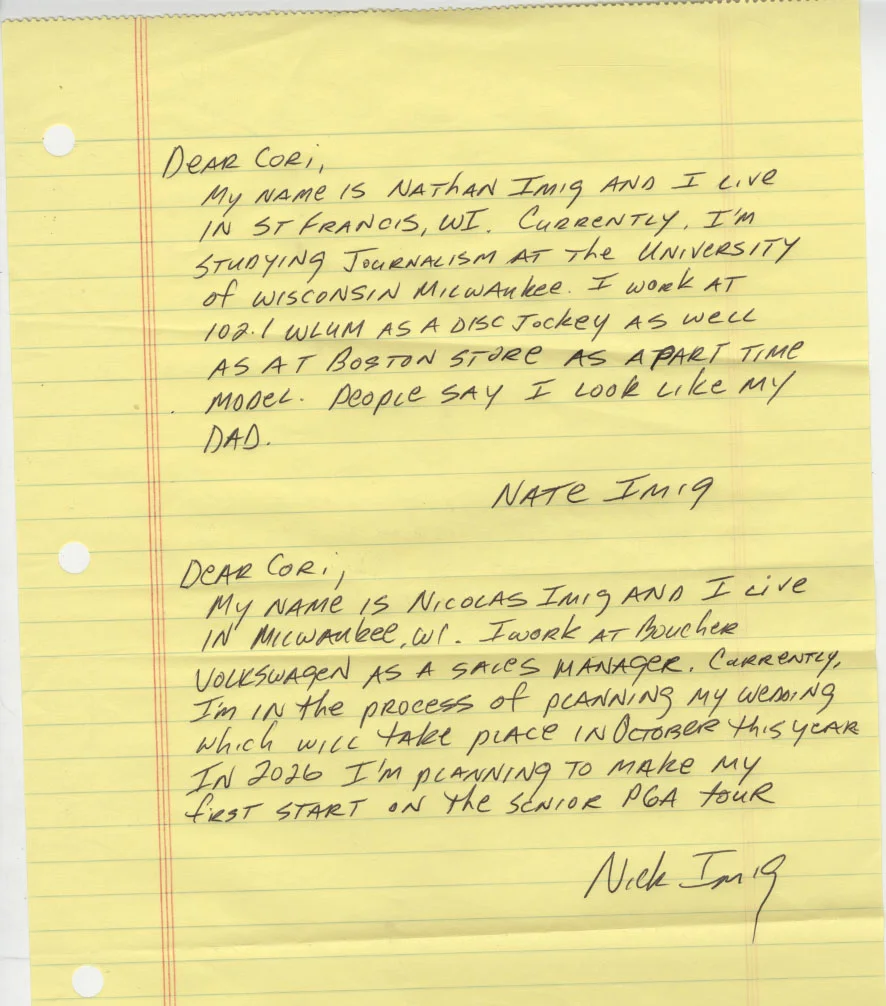 Dear Cori,
My name is Nathan Imig and I live
in St Francis, WI. Currently, I'm
studying Journalism at the University
of Wisconsin Milwaukee. I work at
102.1 WLUM as a disc jockey as well
as at Boston Store as a part time
model. People say I look like my
dad.
Nate Imig
Dear Cori,
My name is Nicolas Imig and I live
in Milwaukee, WI. I work at Boucher
Volkswagen as a sales manager. Currently,
I'm in the process of planning my wedding
which will take place in October this year
In 2026 I'm planning to make my
first start on the senior PGA tour
Nick Imig